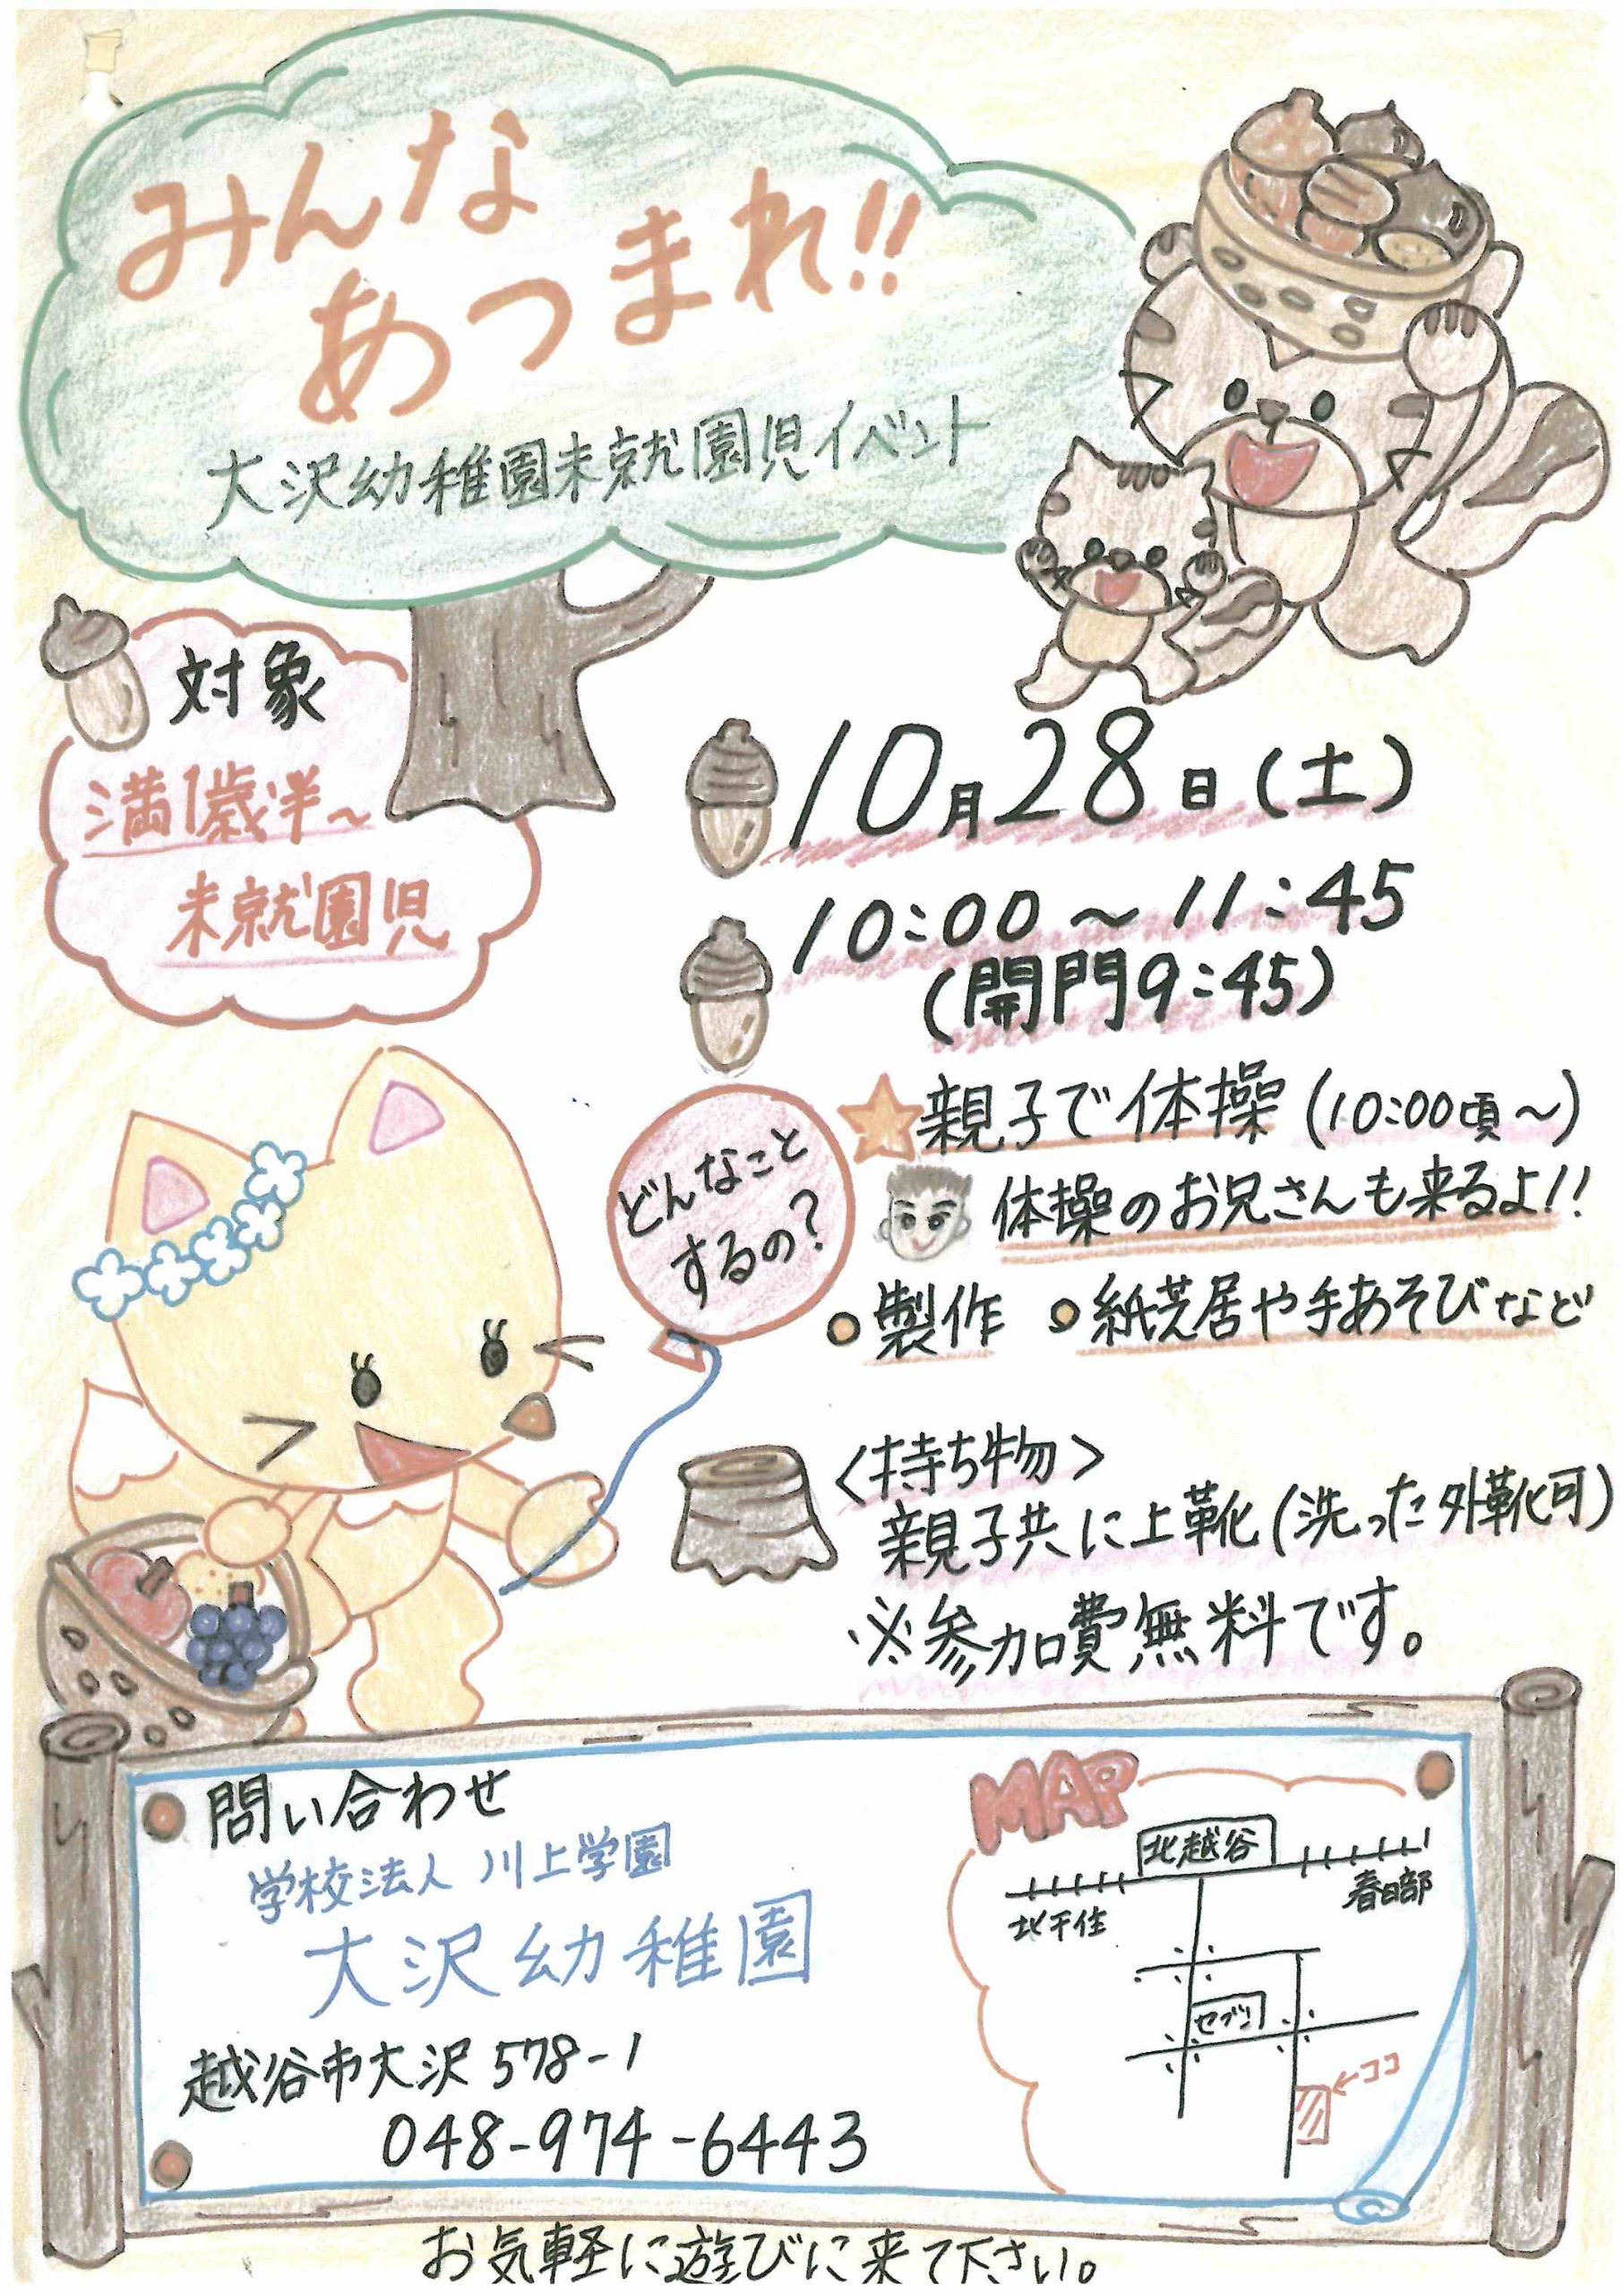 みんな
あつまれ!!
大沢幼稚園未就園児イベント
対象
満1歳半～
未就園児
10月28日(土)
10:00～11:45
(開門9:45)
どんなこと
するの?
親子で体操(10:00頃～)
体操のお兄さんも来るよ!!
製作 紙芝居や手あそびなど
<持ち物>
親子共に上靴(洗った外靴可)
※参加費無料です。
問い合わせ
学校法人 川上学園
大沢幼稚園
越谷市大沢578-1
048-974-6443
MAP
北越谷
北千住
春日部
セブン
←ココ
お気軽に遊びに来て下さい。